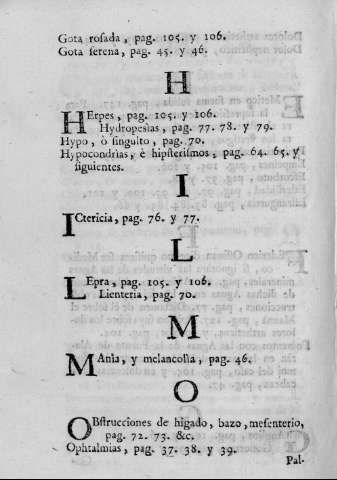 Gota rosada, pag. 105. y 106.
Gota serena, pag. 45. y 46.
H
HErpes, pag. 105. y 106.
Hydropesias, pag. 77. 78. y 79.
Hypo, ò singulto, pag. 70.
Hypocondrias, è hipsterismos, pag. 64. 65. y
siguientes.
I
ICtericia, pag. 76. y 77.
L
LEpra, pag. 105. y 106.
Lienteria, pag. 70.
M
MAnia, y melancolia, pag. 46.
O
OBstrucciones de higado, bazo, mesenterio,
pag. 72. 73. &c.
Ophtalmias, pag. 37. 38. y 39.
Pal-